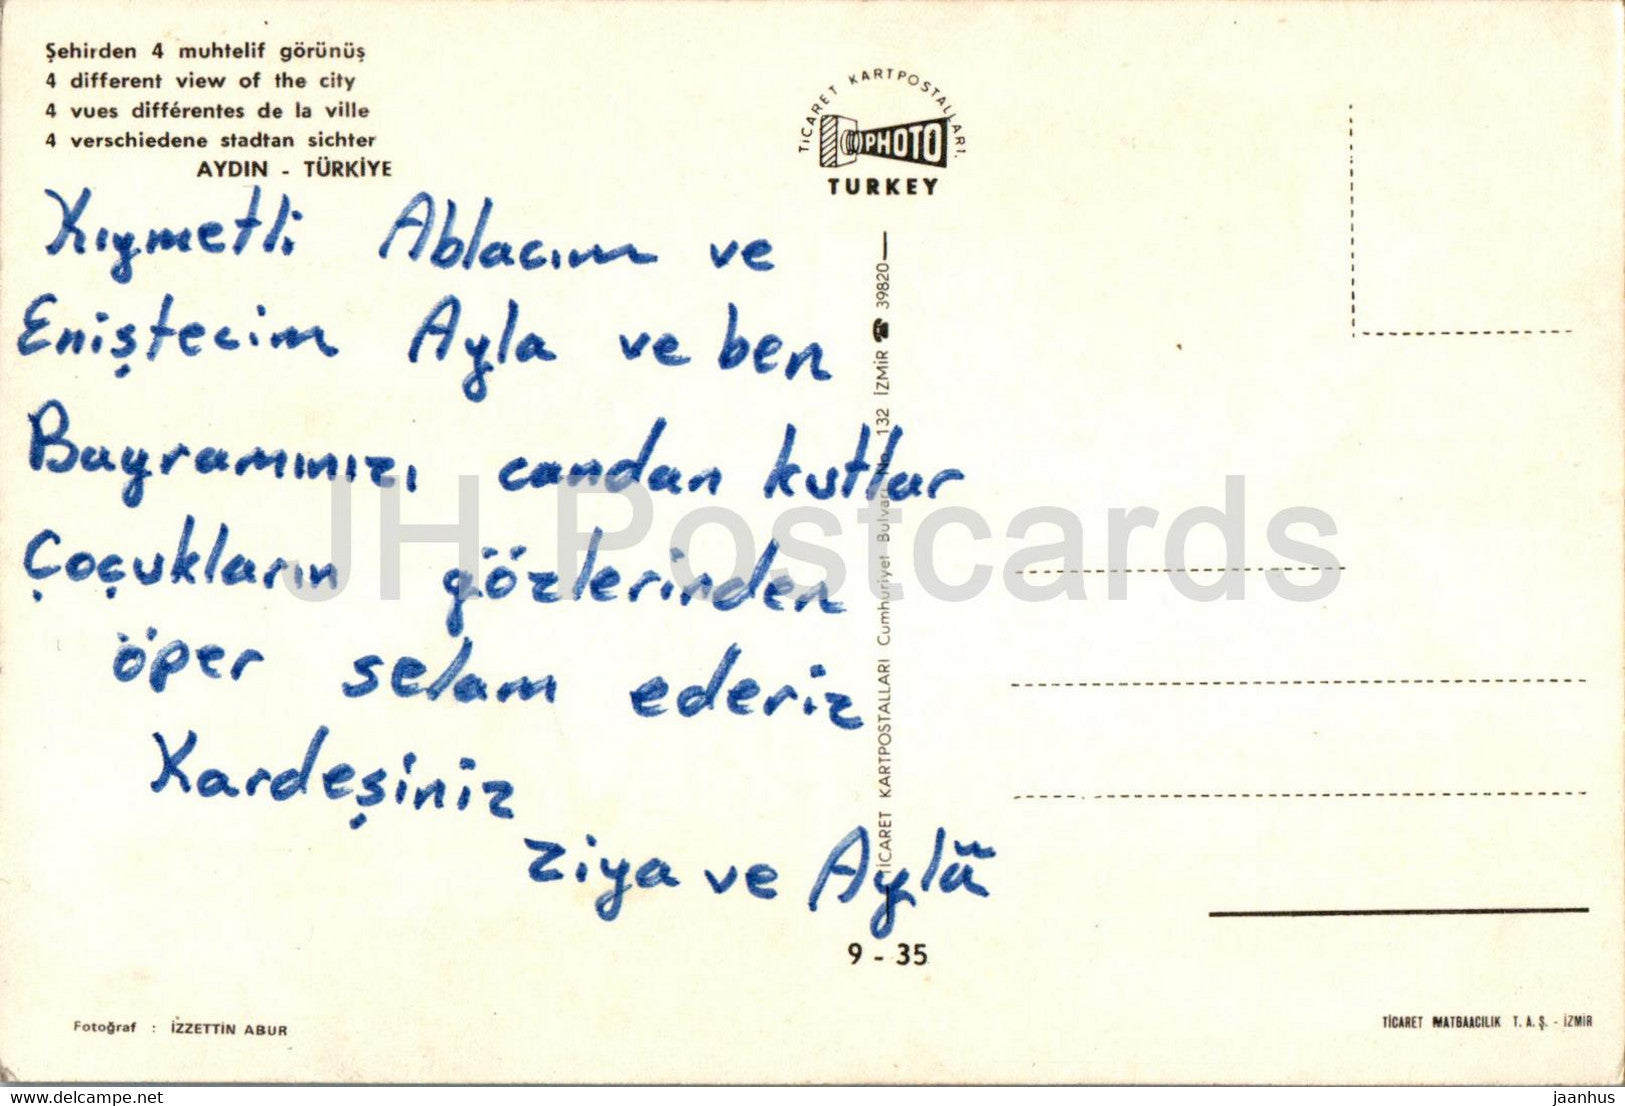 Şehirden 4 muhtelif görünüş
4 different view of the city
4 vues différentes de la ville
4 verschiedene stadtan sichter
AYDIN - TÜRKİYE
TİCARET KARTPOSTALLARI.
PHOTO
TURKEY
Kıymetli Ablacım ve
Eniştecim Ayla ve ben
Bayramınızı candan kutlar
Çoçukların gözlerinden
öper selam ederiz
Kardeşiniz
Ziya ve Aylâ
TİCARET KARTPOSTALLARI Cumhuriyet Bulvarı No. 132 İZMİR ☎ 39820
9 - 35
Fotoğraf : İZZETTİN ABUR
TİCARET MATBAACILIK T. A. Ş. - İZMİR
JH Postcards
www.delcampe.net
jaanhus